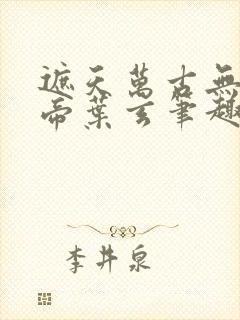 遮天萬古無
帝葉玄筆趣
李井泉